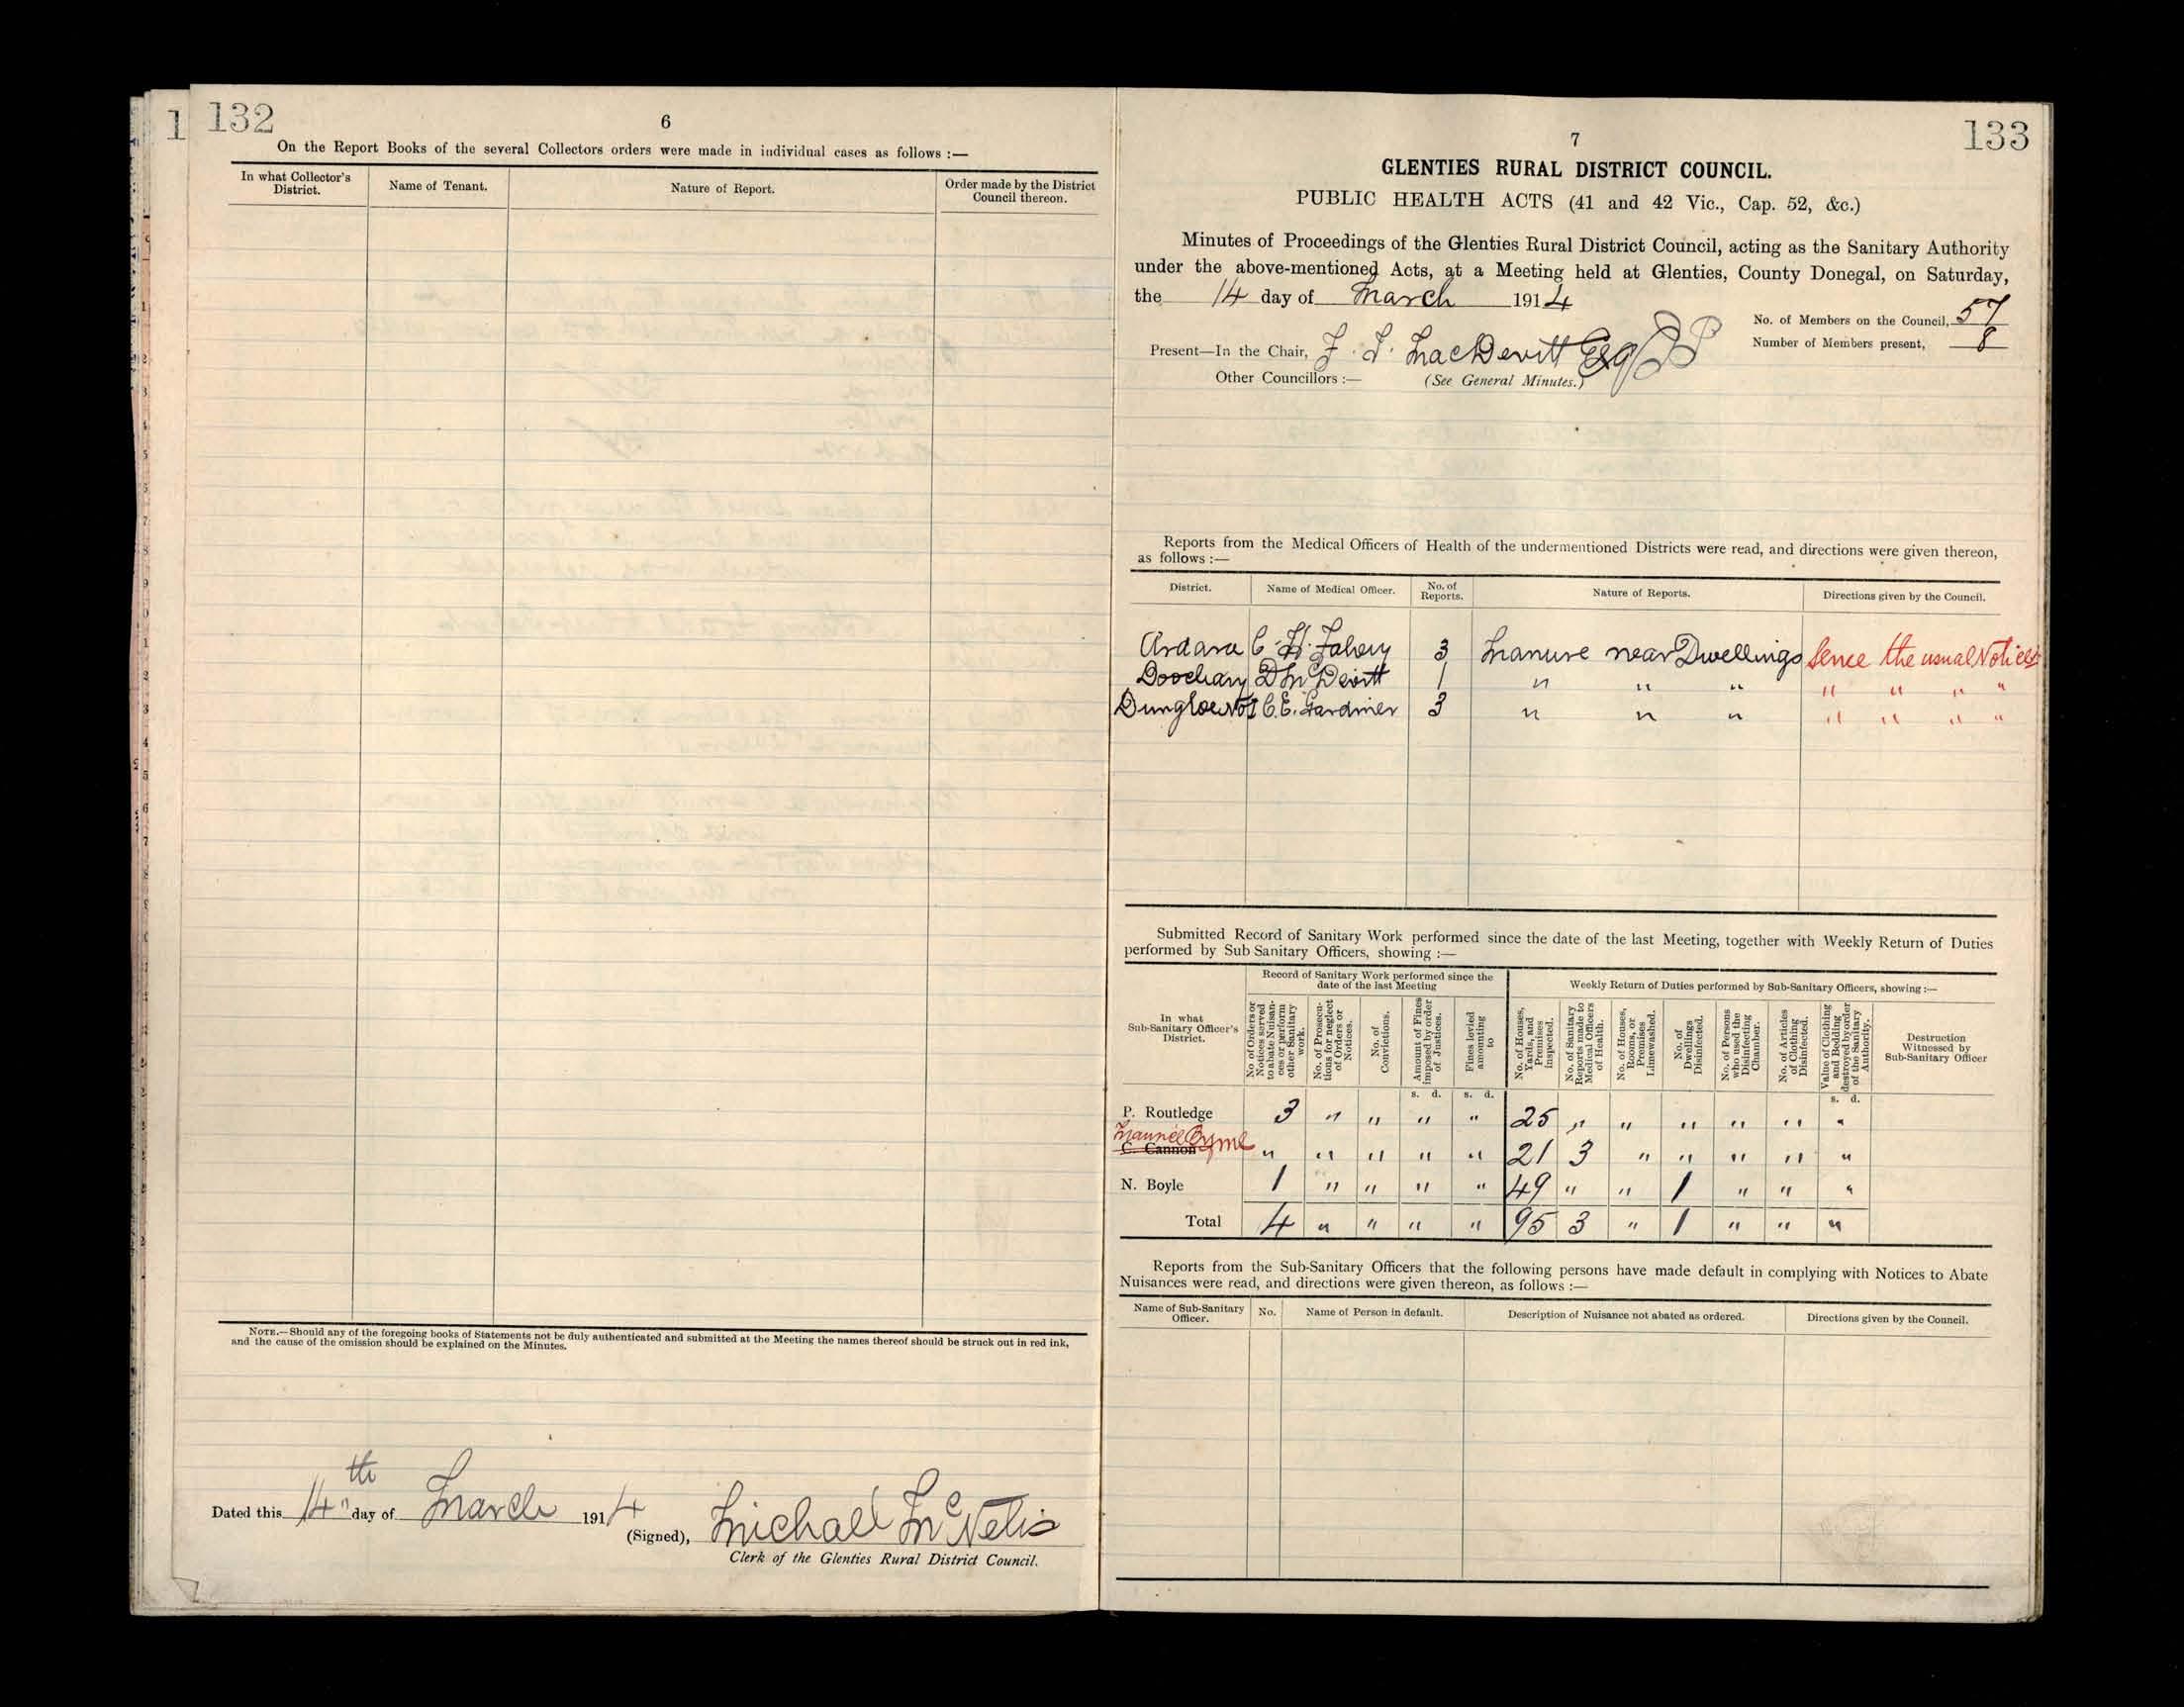 1
132
6
On the Report Books of the several Collectors orders were made in individual cases as follows :—
In what Collector's District. Name of Tenant. Nature of Report. Order made by the District Council thereon.
NOTE.—Should any of the foregoing books of Statements not be duly authenticated and submitted at the Meeting the names thereof should be struck out in red ink,
and the cause of the omission should be explained on the Minutes.
Dated this 14th day of March 1914
(Signed), Michael McNelis
Clerk of the Glenties Rural District Council.
133
7
GLENTIES RURAL DISTRICT COUNCIL.
PUBLIC HEALTH ACTS (41 and 42 Vic., Cap. 52, &c.)
Minutes of Proceedings of the Glenties Rural District Council, acting as the Sanitary Authority
under the above-mentioned Acts, at a Meeting held at Glenties, County Donegal, on Saturday,
the 14 day of March 1914
No. of Members on the Council, 57
Number of Members present, 8
Present—In the Chair, J. F. MacDevitt Esq JP
Other Councillors :— (See General Minutes.)
Reports from the Medical Officers of Health of the undermentioned Districts were read, and directions were given thereon,
as follows :—
District. Name of Medical Officer. No. of Reports. Nature of Reports. Directions given by the Council.
Ardara C. H. Falvey 3 Manure near Dwellings the usual Notices
Doochary D McDevitt 1 " " " " " " "
Dungloe No1 C. E. Gardiner 3 " " " " " " "
Submitted Record of Sanitary Work performed since the date of the last Meeting, together with Weekly Return of Duties
performed by Sub Sanitary Officers, showing :—
Record of Sanitary Work performed since the date of the last Meeting
Weekly Return of Duties performed by Sub-Sanitary Officers, showing :—
In what Sub-Sanitary Officer's District.
No of Orders or Notices served to abate Nuisances or perform other Sanitary work.
No. of Prosecutions for neglect of Orders or Notices.
No. of Convictions.
Amount of Fines imposed by order of Justices.
Fines levied amounting to
No. of Houses, Yards, and Premises inspected.
No. of Sanitary Reports made to Medical Officers of Health.
No. of Houses, Rooms, or Premises Limewashed.
No. of Dwellings Disinfected.
No. of Persons who used the Disinfecting Chamber.
No. of Articles of Clothing Disinfected.
Value of Clothing and Bedding destroyed by order of the Sanitary Authority.
Destruction Witnessed by Sub-Sanitary Officer
s. d. s. d. s. d.
P. Routledge 3 " " " " 25 " " " " " "
Byrne
C. Cannon " " " " " 21 3 " " " " "
N. Boyle 1 " " " " 49 " " 1 " " "
Total 4 " " " " 95 3 " 1 " " "
Reports from the Sub-Sanitary Officers that the following persons have made default in complying with Notices to Abate
Nuisances were read, and directions were given thereon, as follows :—
Name of Sub-Sanitary Officer. No. Name of Person in default. Description of Nuisance not abated as ordered. Directions given by the Council.